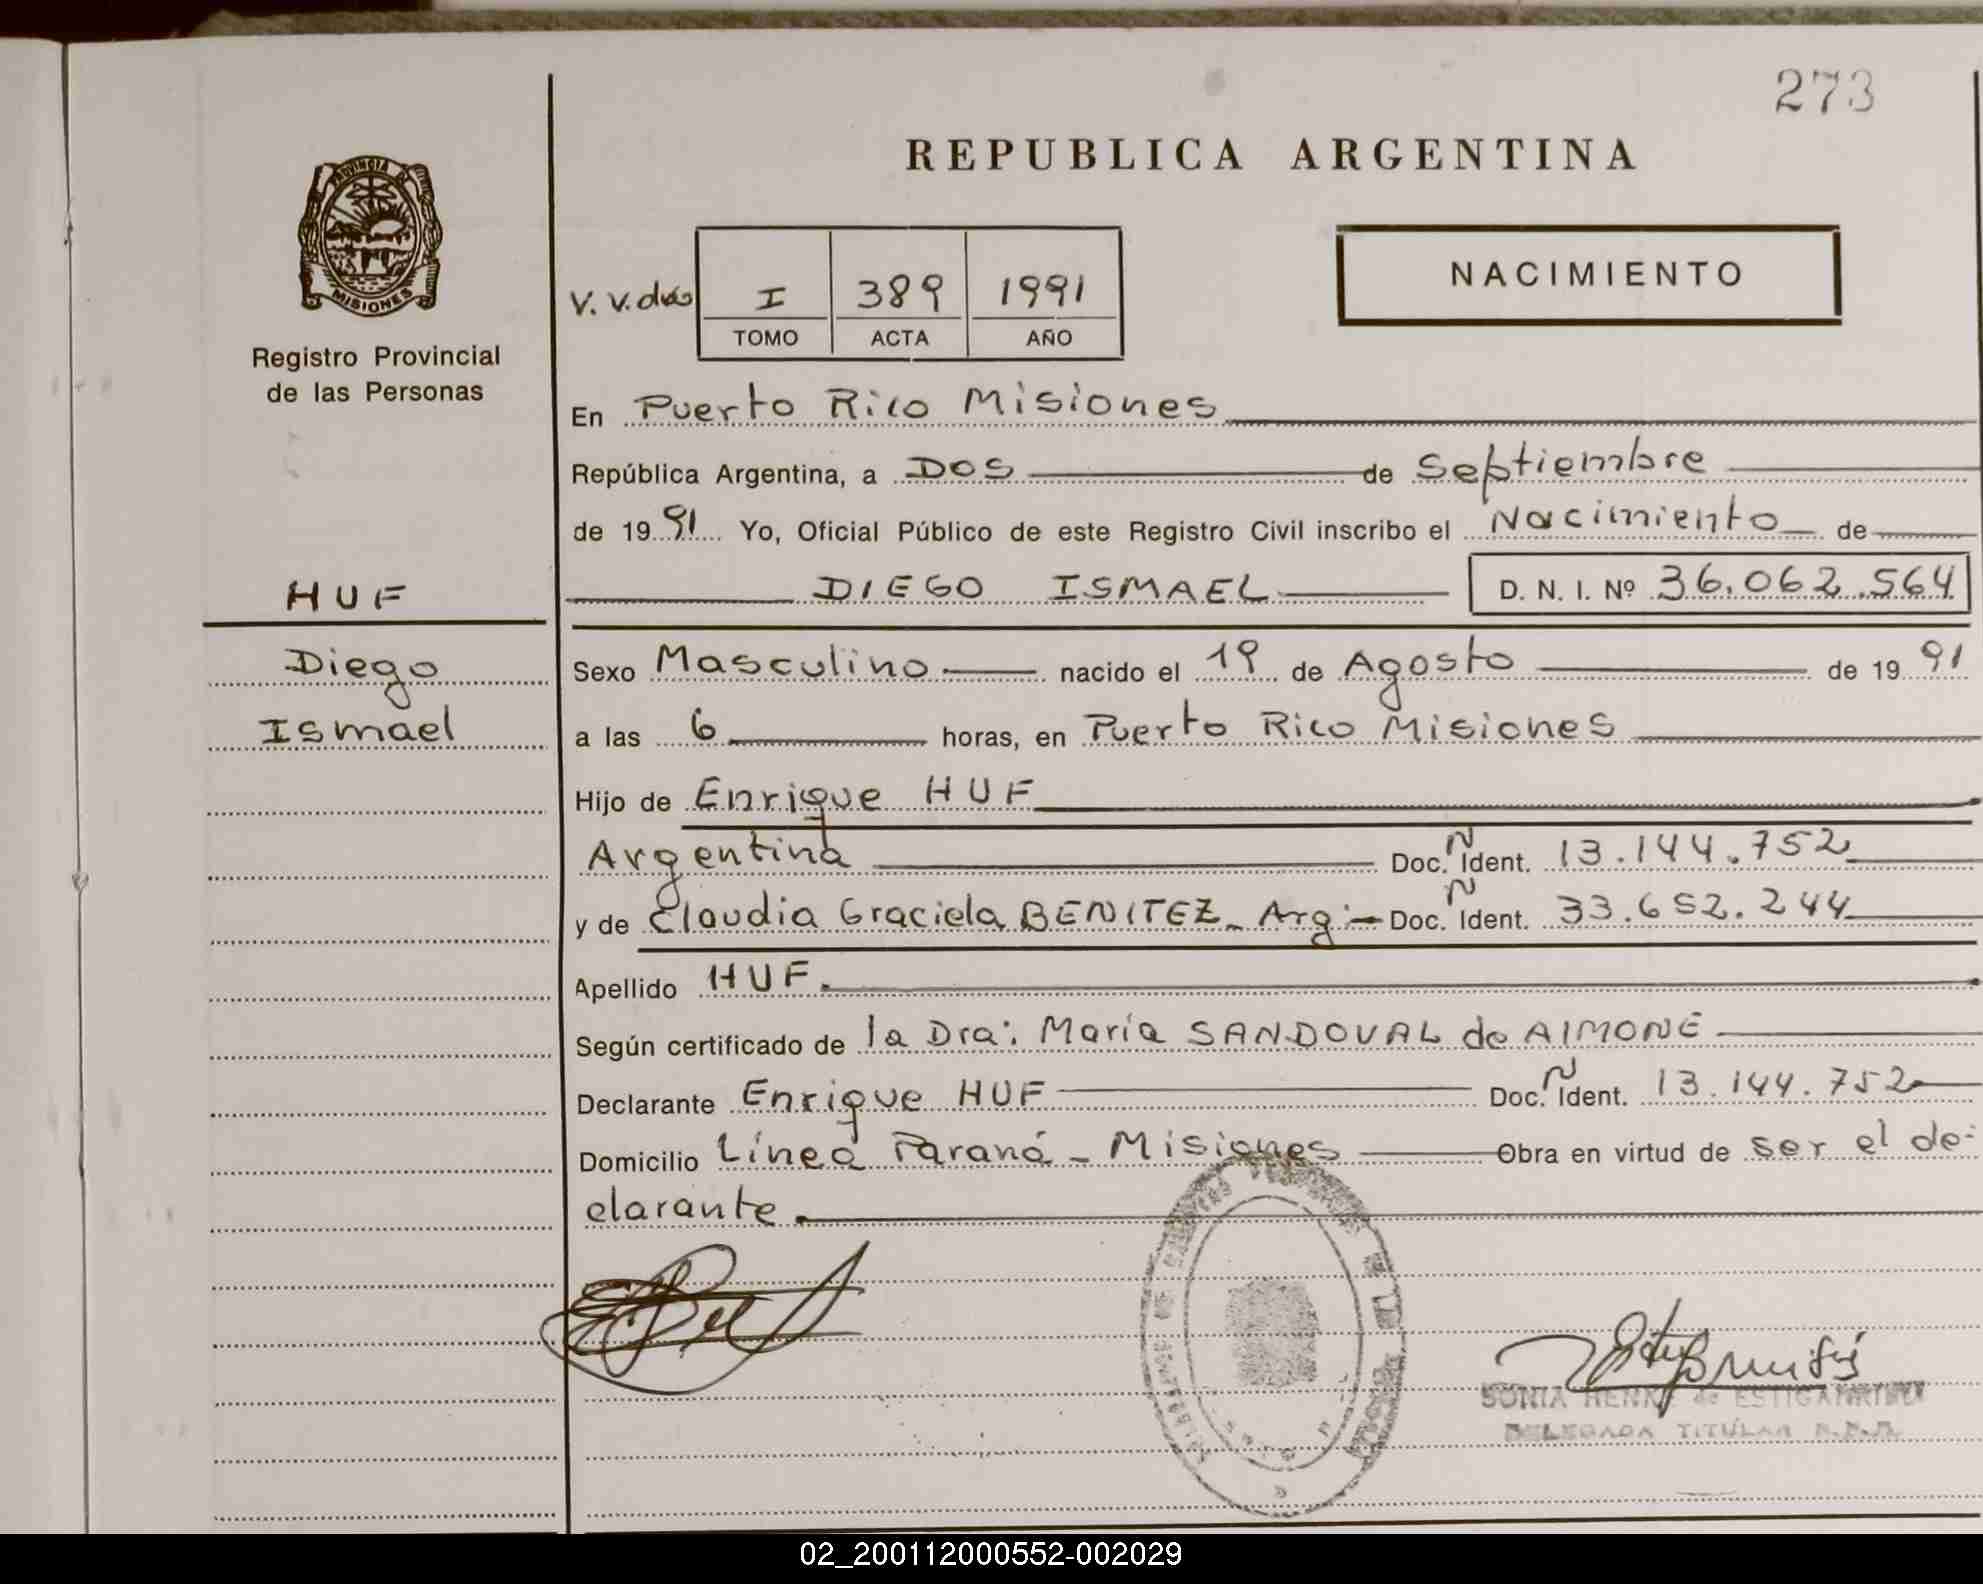 273
REPUBLICA ARGENTINA
PROVINCIA DE
MISIONES
Registro Provincial
de las Personas
NACIMIENTO
V. V. I 389 1991
TOMO ACTA AÑO
En Puerto Rico Misiones
República Argentina, a DOS de Septiembre
de 1991 Yo, Oficial Público de este Registro Civil inscribo el Nacimiento de
HUF
DIEGO ISMAEL D. N. I. Nº 36.062.564
Diego
Ismael
Sexo Masculino nacido el 19 de Agosto de 1991
a las 6 horas, en Puerto Rico Misiones
Hijo de Enrique HUF
Argentina Doc. N Ident. 13.144.752
y de Claudia Graciela BENITEZ - Arg:- Doc. N Ident. 33.652.244
Apellido HUF.
Según certificado de la Dra: María SANDOVAL de AIMONE
Declarante Enrique HUF Doc. N Ident. 13.144.752
Domicilio Línea Paraná - Misiones Obra en virtud de ser el de-
clarante.
SONIA HENN de
DELEGADA TITULAR
02_200112000552-002029